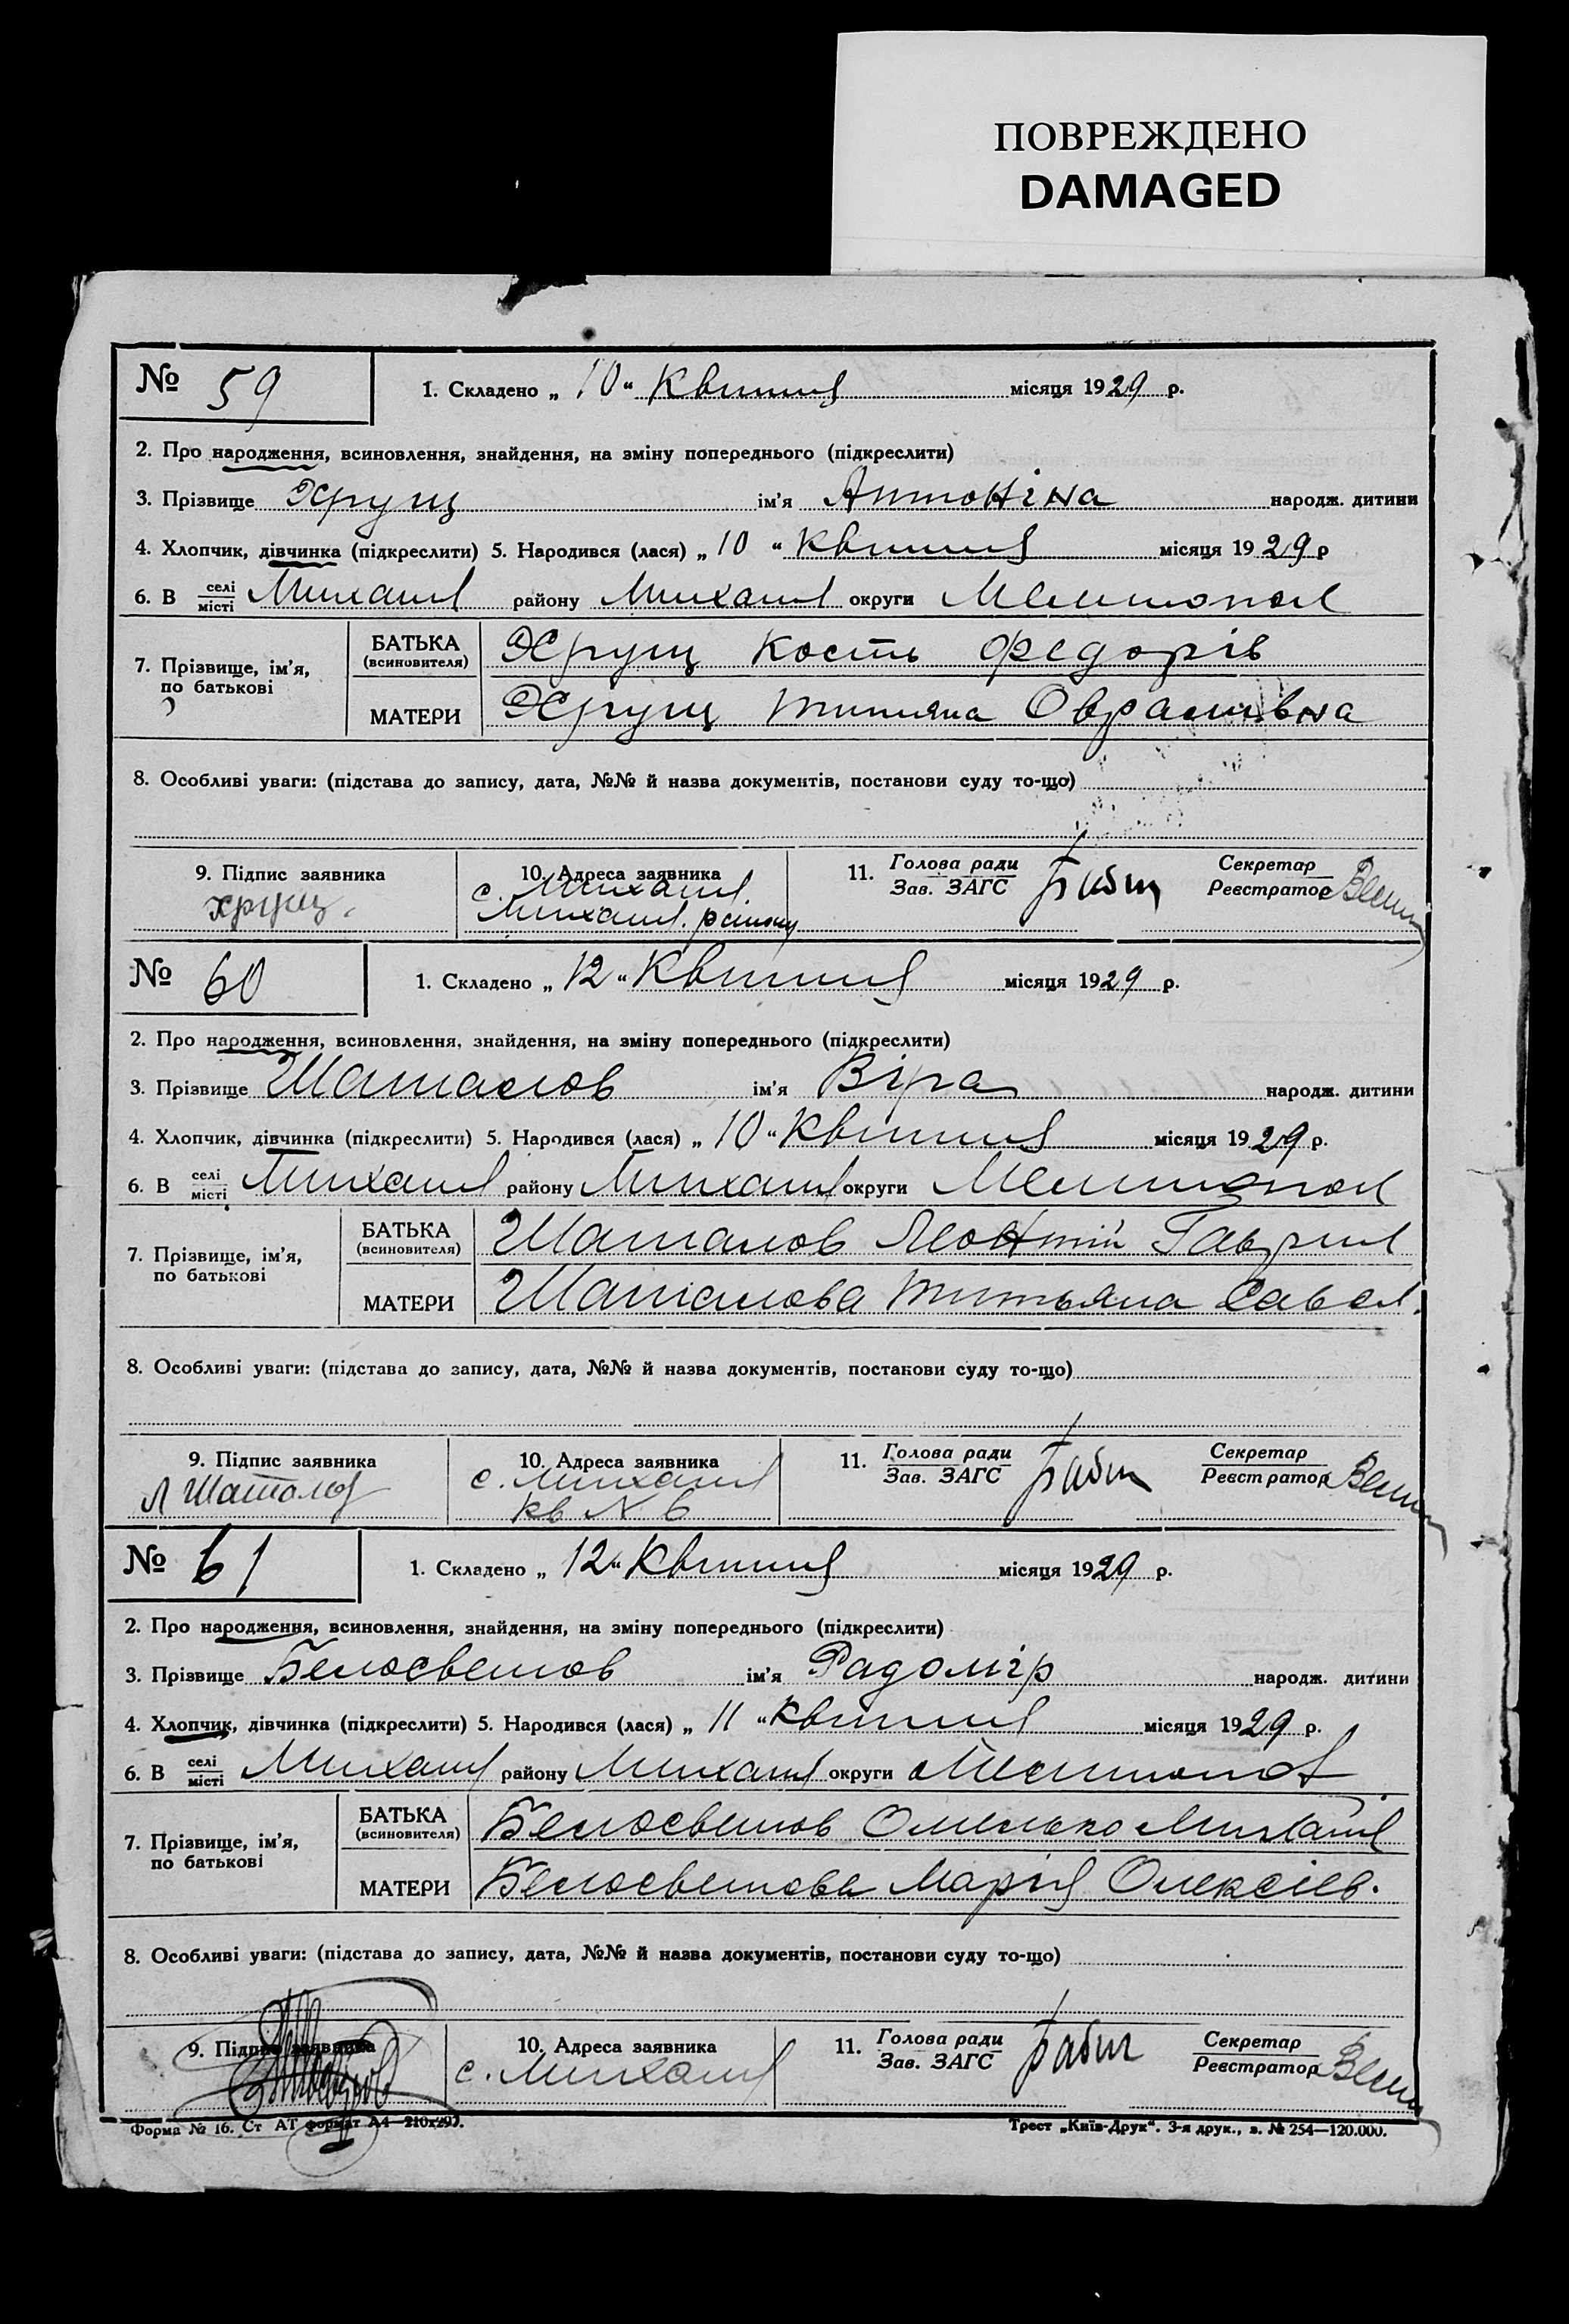 ПОВРЕЖДЕНО
DAMAGED
№ 59 1. Складено „ 10 “ Квітня місяця 1929 р.
2. Про народження, всиновлення, знайдення, на зміну попереднього (підкреслити)
3. Прізвище Хрущ ім’я Антоніна народж. дитини
4. Хлопчик, дівчинка (підкреслити) 5. Народився (лася) „ 10 “ Квітня місяця 1929 р
6. В селі місті Михайл району Михайл округи Мелитопол
7. Прізвище, ім’я, по батькові
БАТЬКА (всиновителя) Хрущ Кость Федорів
МАТЕРИ Хрущ Титяна Оврамівна
8. Особливі уваги: (підстава до запису, дата, №№ й назва документів, постанови суду то-що)
9. Підпис заявника 10. Адреса заявника 11. Голова ради Зав. ЗАГС Секретар Реєстратор
Хрущ с. Михайл. Бабич
Михайл. району
№ 60 1. Складено „ 12 “ Квітня місяця 1929 р.
2. Про народження, всиновлення, знайдення, на зміну попереднього (підкреслити)
3. Прізвище Шаталов ім’я Віра народж. дитини
4. Хлопчик, дівчинка (підкреслити) 5. Народився (лася) „ 10 “ Квітня місяця 1929 р.
6. В селі місті Михайл району Михайл округи Мелитопол
7. Прізвище, ім’я, по батькові
БАТЬКА (всиновителя) Шаталов Леонтій Гаврил
МАТЕРИ Шаталова Титьяна Савел.
8. Особливі уваги: (підстава до запису, дата, №№ й назва документів, постанови суду то-що)
9. Підпис заявника 10. Адреса заявника 11. Голова ради Зав. ЗАГС Секретар Реєстратор
Л Шаталов с. Михайл Бабич
кв N 6
№ 61 1. Складено „ 12 “ Квітня місяця 1929 р.
2. Про народження, всиновлення, знайдення, на зміну попереднього (підкреслити)
3. Прізвище Белосветов ім’я Радомір народж. дитини
4. Хлопчик, дівчинка (підкреслити) 5. Народився (лася) „ 11 “ Квітня місяця 1929 р.
6. В селі місті Михайл району Михайл округи Мелитопол
7. Прізвище, ім’я, по батькові
БАТЬКА (всиновителя) Белосветов Омелько Михайл
МАТЕРИ Белосветова Марія Олексієв.
8. Особливі уваги: (підстава до запису, дата, №№ й назва документів, постанови суду то-що)
9. Підпис заявника 10. Адреса заявника 11. Голова ради Зав. ЗАГС Секретар Реєстратор
с. Михайл Бабич
Форма № 16. Ст АТ формат А4—210х297. Трест „Київ-Друк“. 3-я друк., з. № 254—120.000.